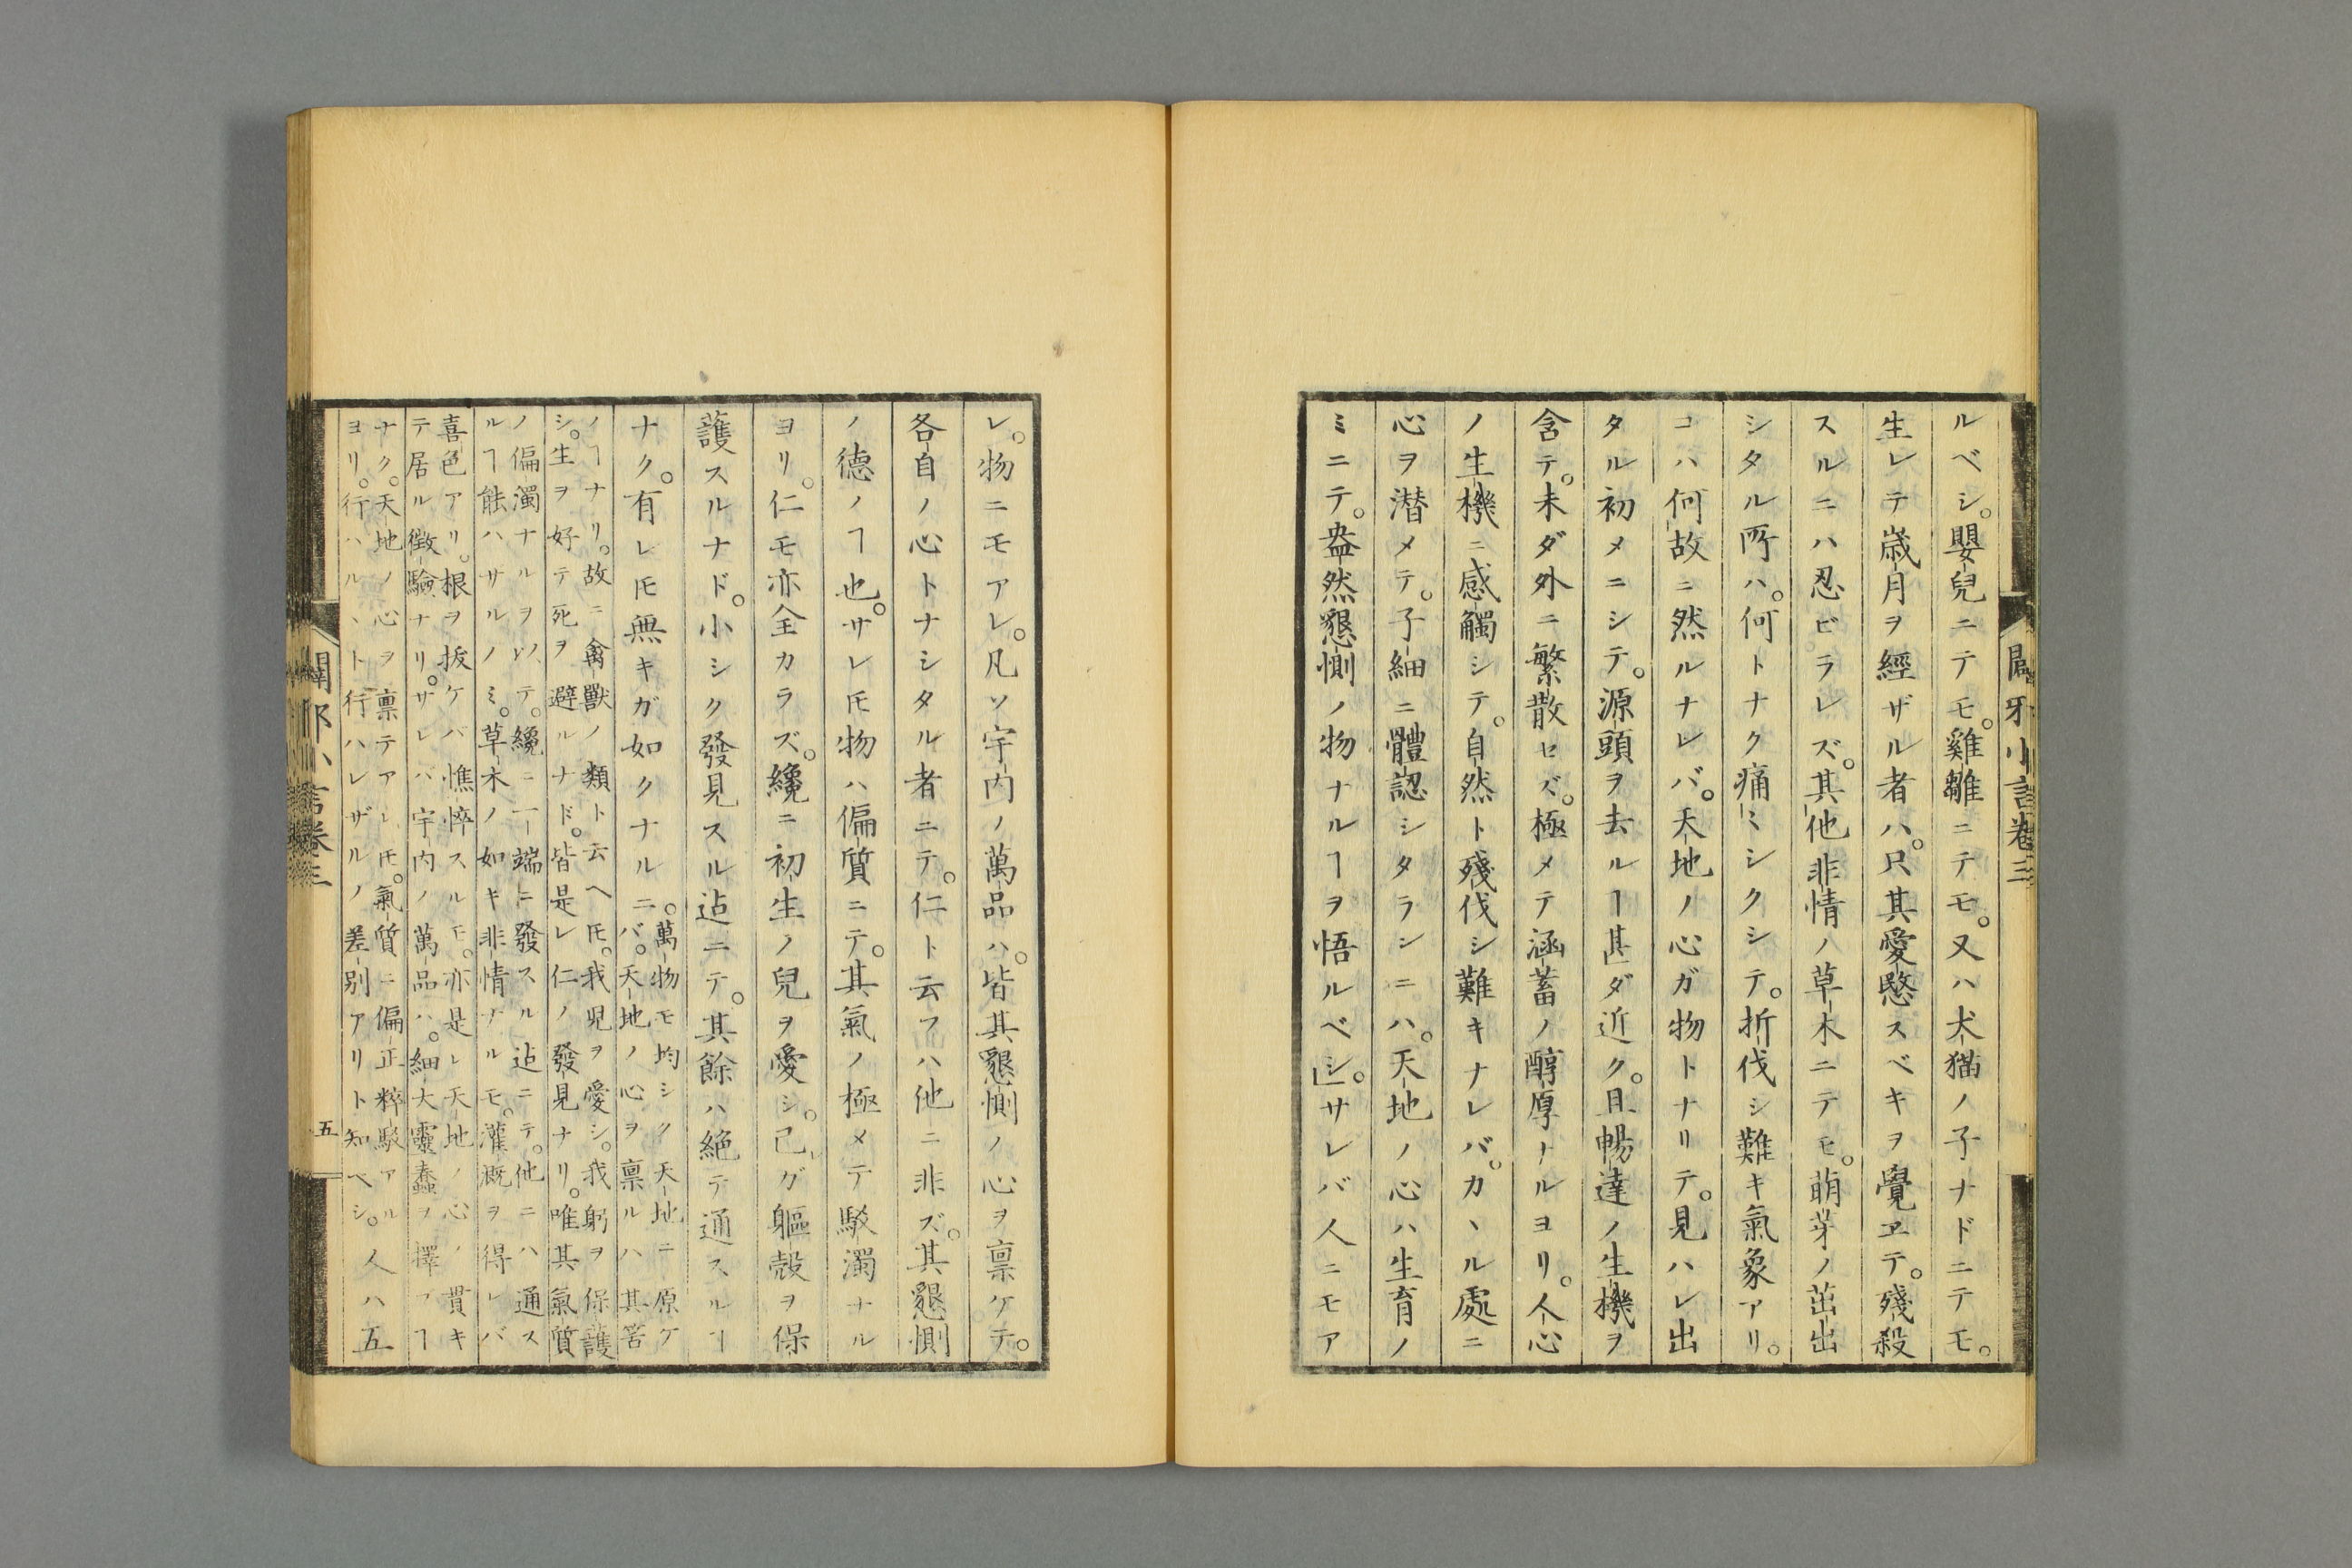 闢邪小言卷三
ルベシ。嬰兒ニテモ。雞雛ニテモ。又ハ犬猫ノ子ナドニテモ。
生レテ歳月ヲ經ザル者ハ。只其愛愍スベキヲ覺ヱテ。殘殺
スルニハ忍ビラレズ。其他非情ノ草木ニテモ。萌芽ノ茁出
シタル所ハ。何トナク痛ミシクシテ。折伐シ難キ氣象アリ。
コハ何故ニ然ルナレバ。天地ノ心ガ物トナリテ。見ハレ出
タル初メニシテ。源頭ヲ去ルヿ甚ダ近ク。且暢達ノ生機ヲ
含テ。未ダ外ニ繁散セズ。極メテ涵蓄ノ醇厚ナルヨリ。人心
ノ生機ニ感觸シテ。自然ト殘伐シ難キナレバ。カヽル處ニ
心ヲ潜メテ。子細ニ體認シタランニハ。天地ノ心ハ生育ノ
ミニテ。盎然懇惻ノ物ナルヿヲ悟ルベシ。」サレバ人ニモア
レ。物ニモアレ。凡ソ宇内ノ萬品ハ。皆其懇惻ノ心ヲ禀ケテ。
各自ノ心トナシタル者ニテ。仁ト云フハ他ニ非ズ。其懇惻
ノ德ノヿ也。サレ𪜈物ハ偏質ニテ。其氣ノ極メテ駁濁ナル
ヨリ。仁モ亦全カラズ。纔ニ初生ノ兒ヲ愛シ。己ガ軀殼ヲ保
護スルナド。小シク發見スル迠ニテ。其餘ハ絶テ通スルヿ
ナク。有レ𪜈無キガ如クナル
。萬物モ均シク天地ニ原ケ
ニバ。天地ノ心ヲ禀ルハ其筈
ノヿナリ。故ニ禽獸ノ類ト云ヘ𪜈。我兒ヲ愛シ。我躬ヲ保護
シ。生ヲ好テ死ヲ避ルナド。皆是レ仁ノ發見ナリ。唯其氣質
ノ偏濁ナルヲ以テ。纔ニ一端ニ發スル迠ニテ。他ニハ通ス
ルヿ能ハサルノミ。草木ノ如キ非情ナルモ。灌漑ヲ得レバ
喜色アリ。根ヲ拔ケバ憔悴スルモ。亦是レ天地ノ心ノ貫キ
テ居ル徴驗ナリ。サレバ宇内ノ萬品ハ。細大靈蠢ヲ擇フヿ
ナク。天地ノ心ヲ禀テアレ𪜈。氣質ニ偏正粹駁アル
ヨリ。行ハルヽト行ハレザルノ差別アリト知ベシ。
人ハ五
闢邪小言卷三
五